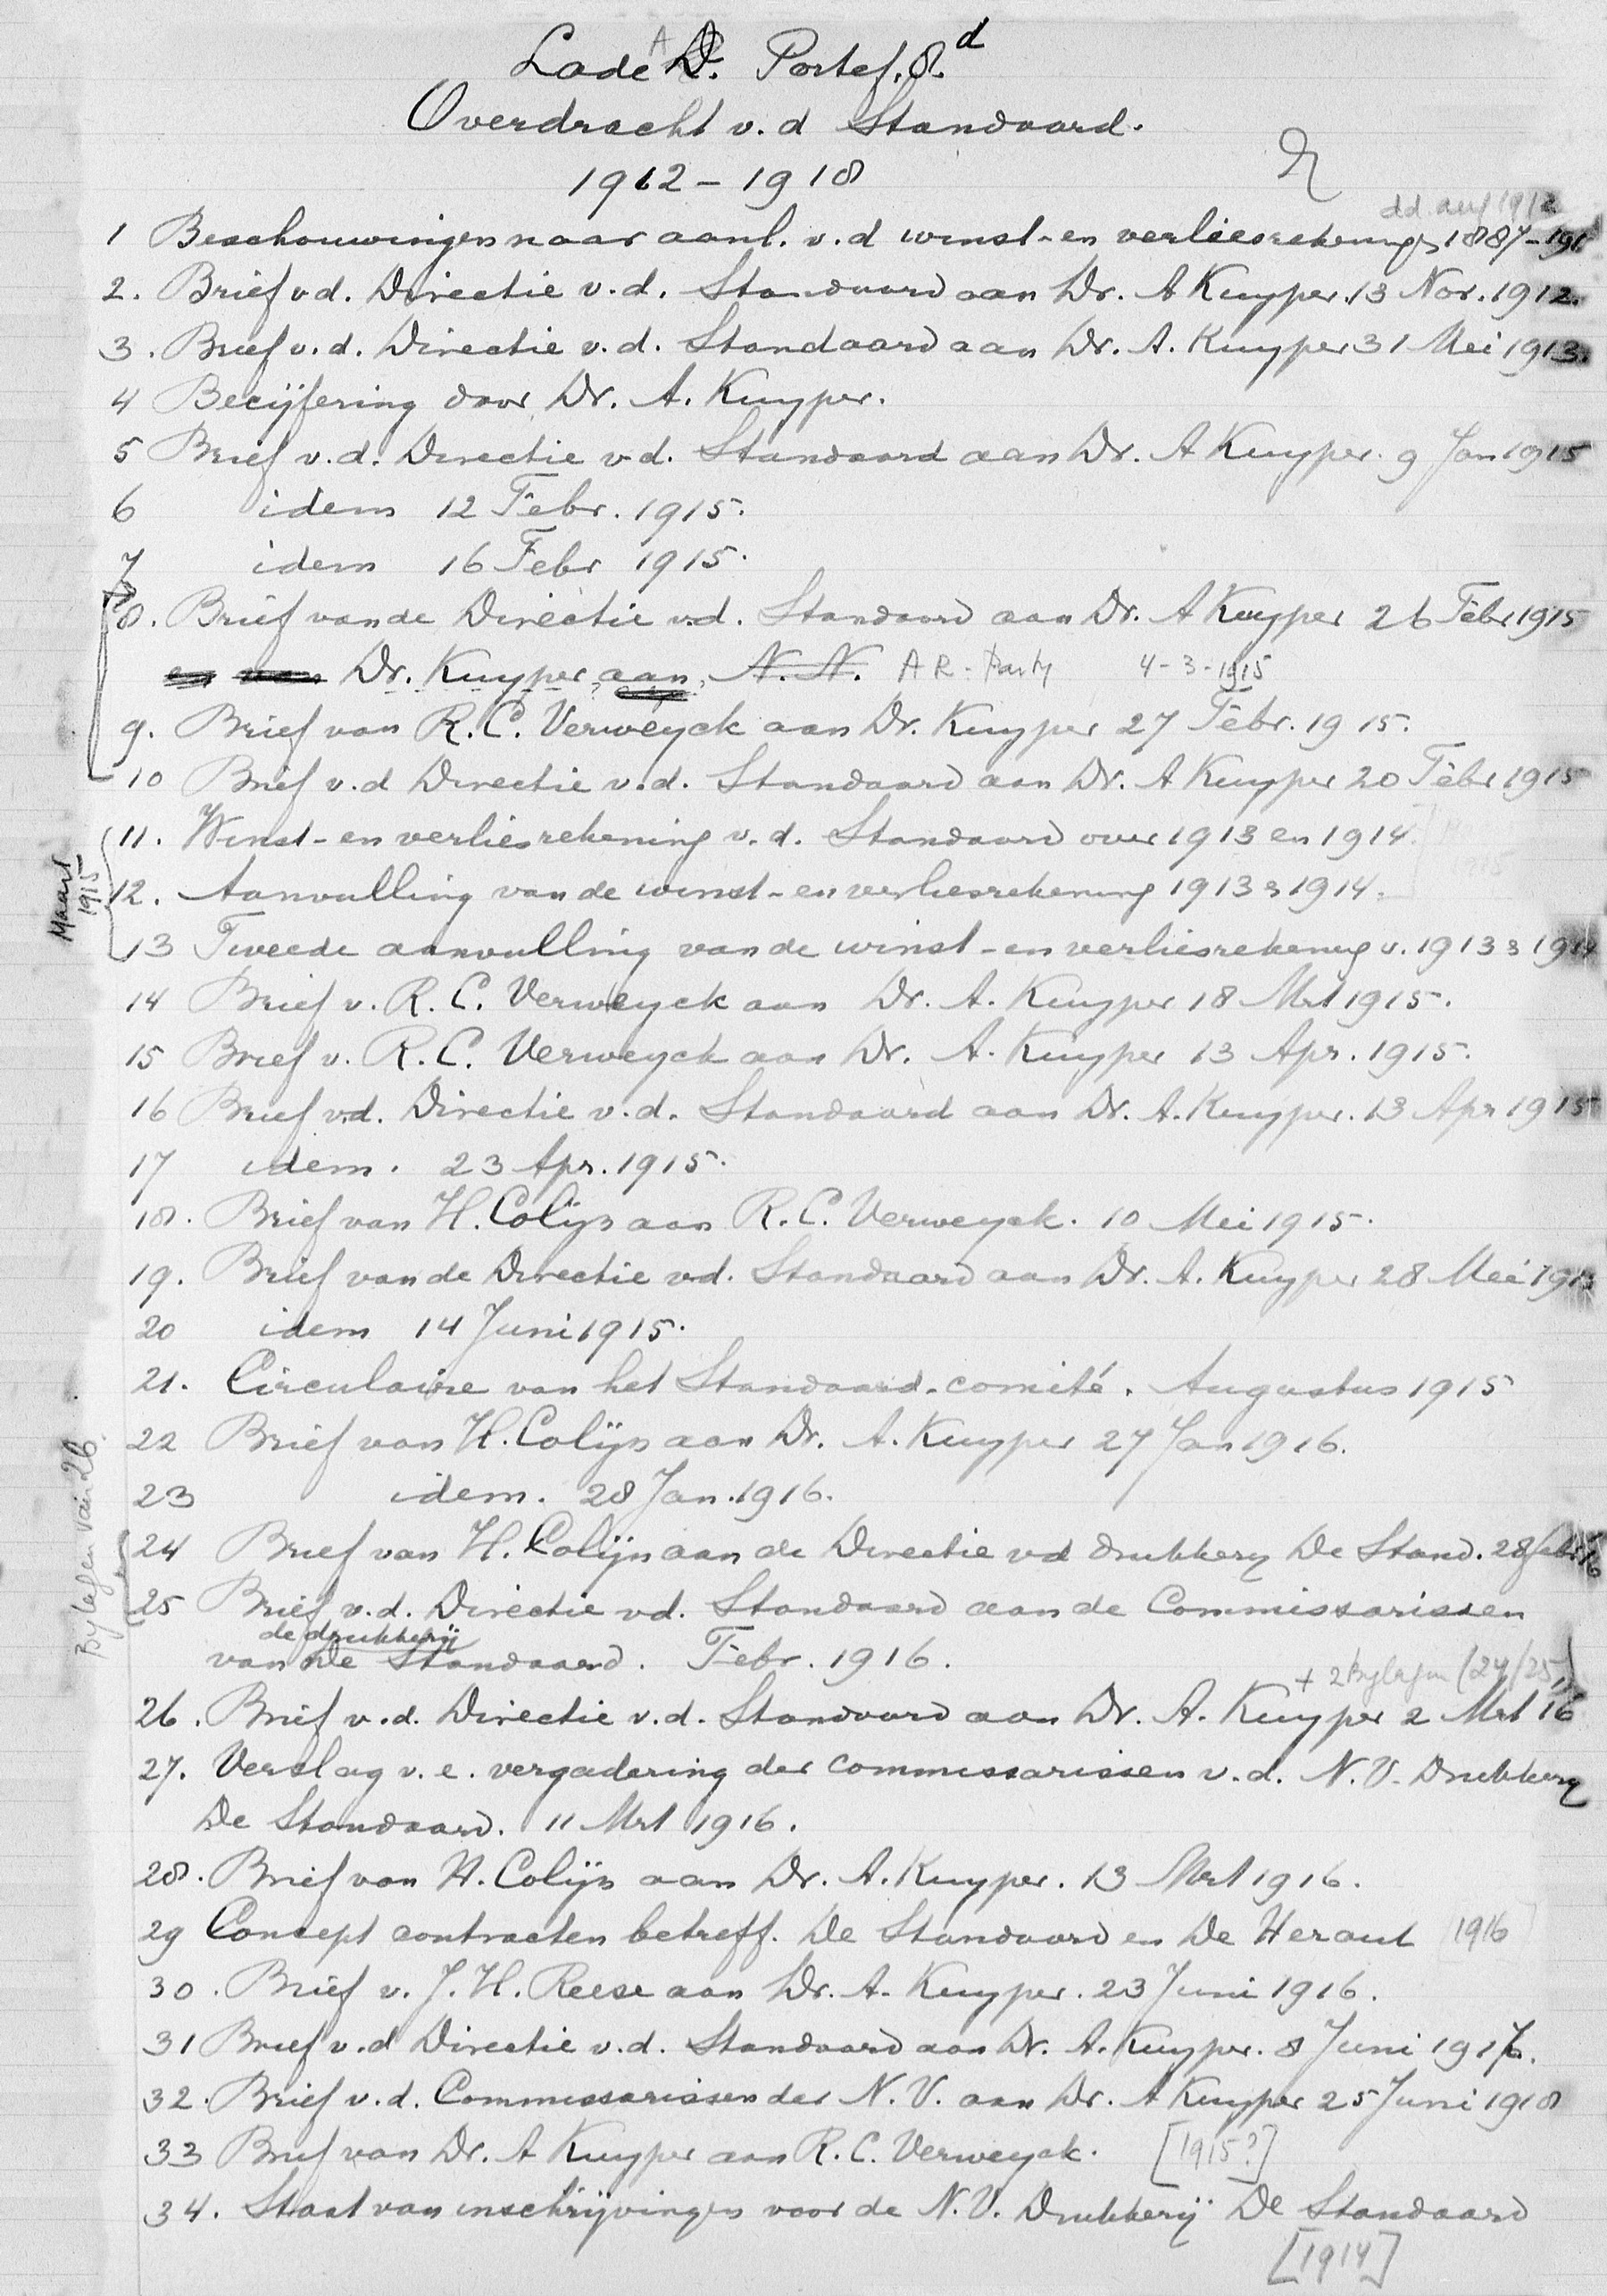 Lade A D. Portef. 8.d
Overdracht v. d Standaard.
1912 - 1918
dd. aug 1912
1 Beschouwingen naar aanl. v. d winst- en verliesrekening 1887-191
2. Brief v d. Directie v. d. Standaard aan Dr. A Kuyper. 13 Nov. 1912.
3. Brief v. d. Directie v. d. Standaard aan Dr. A. Kuyper 31 Mei 1913.
4 Becijfering door Dr. A. Kuyper.
5 Brief v. d. Directie v d. Standaard aan Dr. A Kuyper. 9 Jan 1915
6 idem 12 Febr. 1915.
7 idem 16 Febr 1915.
8. Brief van de Directie v.d. Standaard aan Dr. A Kuyper 26 Febr 1915
en van Dr. Kuyper aan N. N. A R - Party 4-3-1915
9. Brief van R. C. Verweyck aan Dr. Kuyper 27 Febr. 1915.
10 Brief v. d Directie v. d. Standaard aan Dr. A Kuyper 20 Febr 1915
Maart 1915
11. Winst- en verliesrekening v. d. Standaard over 1913 en 1914.
12. Aanvulling van de winst- en verliesrekening 1913 & 1914.
13 Tweede aanvulling van de winst- en verliesrekening v. 1913 & 1914
14 Brief v. R. C. Verweyck aan Dr. A. Kuyper 18 Mrt 1915.
15 Brief v. R. C. Verweyck aan Dr. A. Kuyper 13 Apr. 1915.
16 Brief v.d. Directie v. d. Standaard aan Dr. A. Kuyper. 13 Apr 1915
17 idem. 23 Apr. 1915.
18. Brief van H. Colijn aan R. C. Verweyck. 10 Mei 1915.
19. Brief van de Directie v.d. Standaard aan Dr. A. Kuyper 28 Mei 1915
20 idem 14 Juni 1915.
21. Circulaire van het Standaard-comité. Augustus 1915
22 Brief van H. Colijn aan Dr. A. Kuyper 27 Jan 1916.
23 idem. 28 Jan. 1916.
Bylagen van 26.
24 Brief van H. Colijn aan de Directie v d drukkery De Stand. 28 febr 16
25 Brief v. d. Directie v d. Standaard aan de Commissarissen
de drukkerij
van De Standaard. Febr. 1916.
+ 2 Bylagen (24/25)
26. Brief v. d. Directie v. d. Standaard aan Dr. A. Kuyper 2 Mrt 16
27. Verslag v. e. vergadering der commissarissen v. d. N. V. Drukkery
De Standaard. 11 Mrt 1916.
28. Brief van H. Colijn aan Dr. A. Kuyper. 13 Mrt 1916.
29 Concept contracten betreff. De Standaard en De Heraut [1916]
30. Brief v. J. H. Reese aan Dr. A. Kuyper. 23 Juni 1916.
31 Brief v. d Directie v. d. Standaard aan Dr. A. Kuyper. 8 Juni 1917.
32. Brief v. d. Commissarissen der N. V. aan Dr. A Kuyper 25 Juni 1918
33 Brief van Dr. A Kuyper aan R. C. Verweyck. [1915?]
34. Staat van inschrijvingen voor de N. V. Drukkerij De Standaard
[1914]